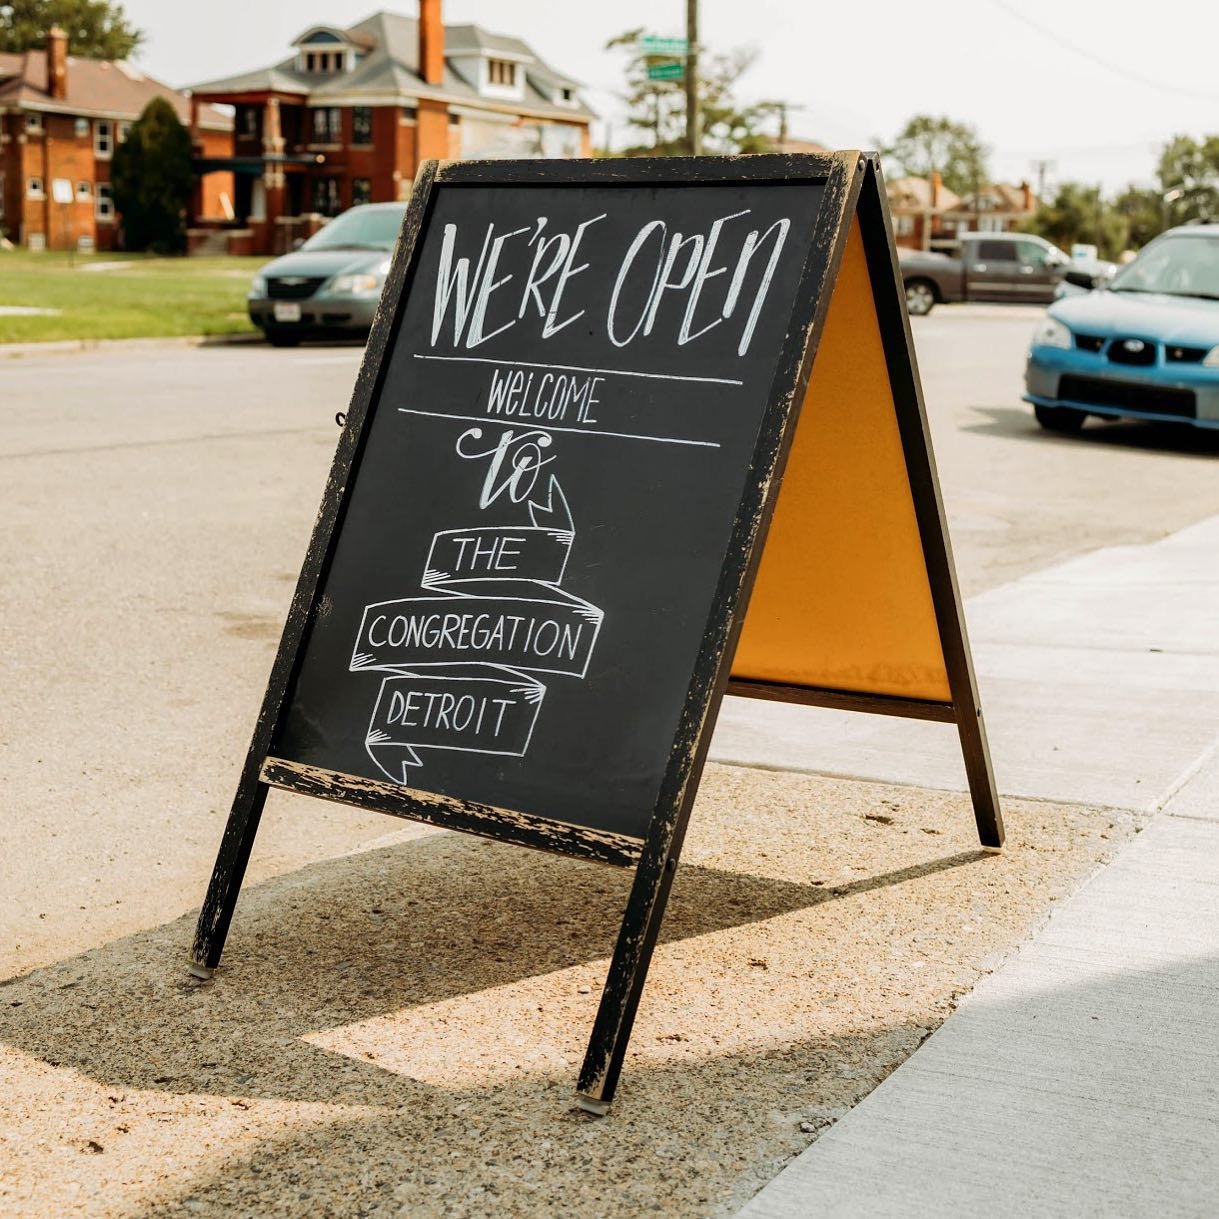 WE'RE OPEN
WELCOME
to
THE
CONGREGATION
DETROIT